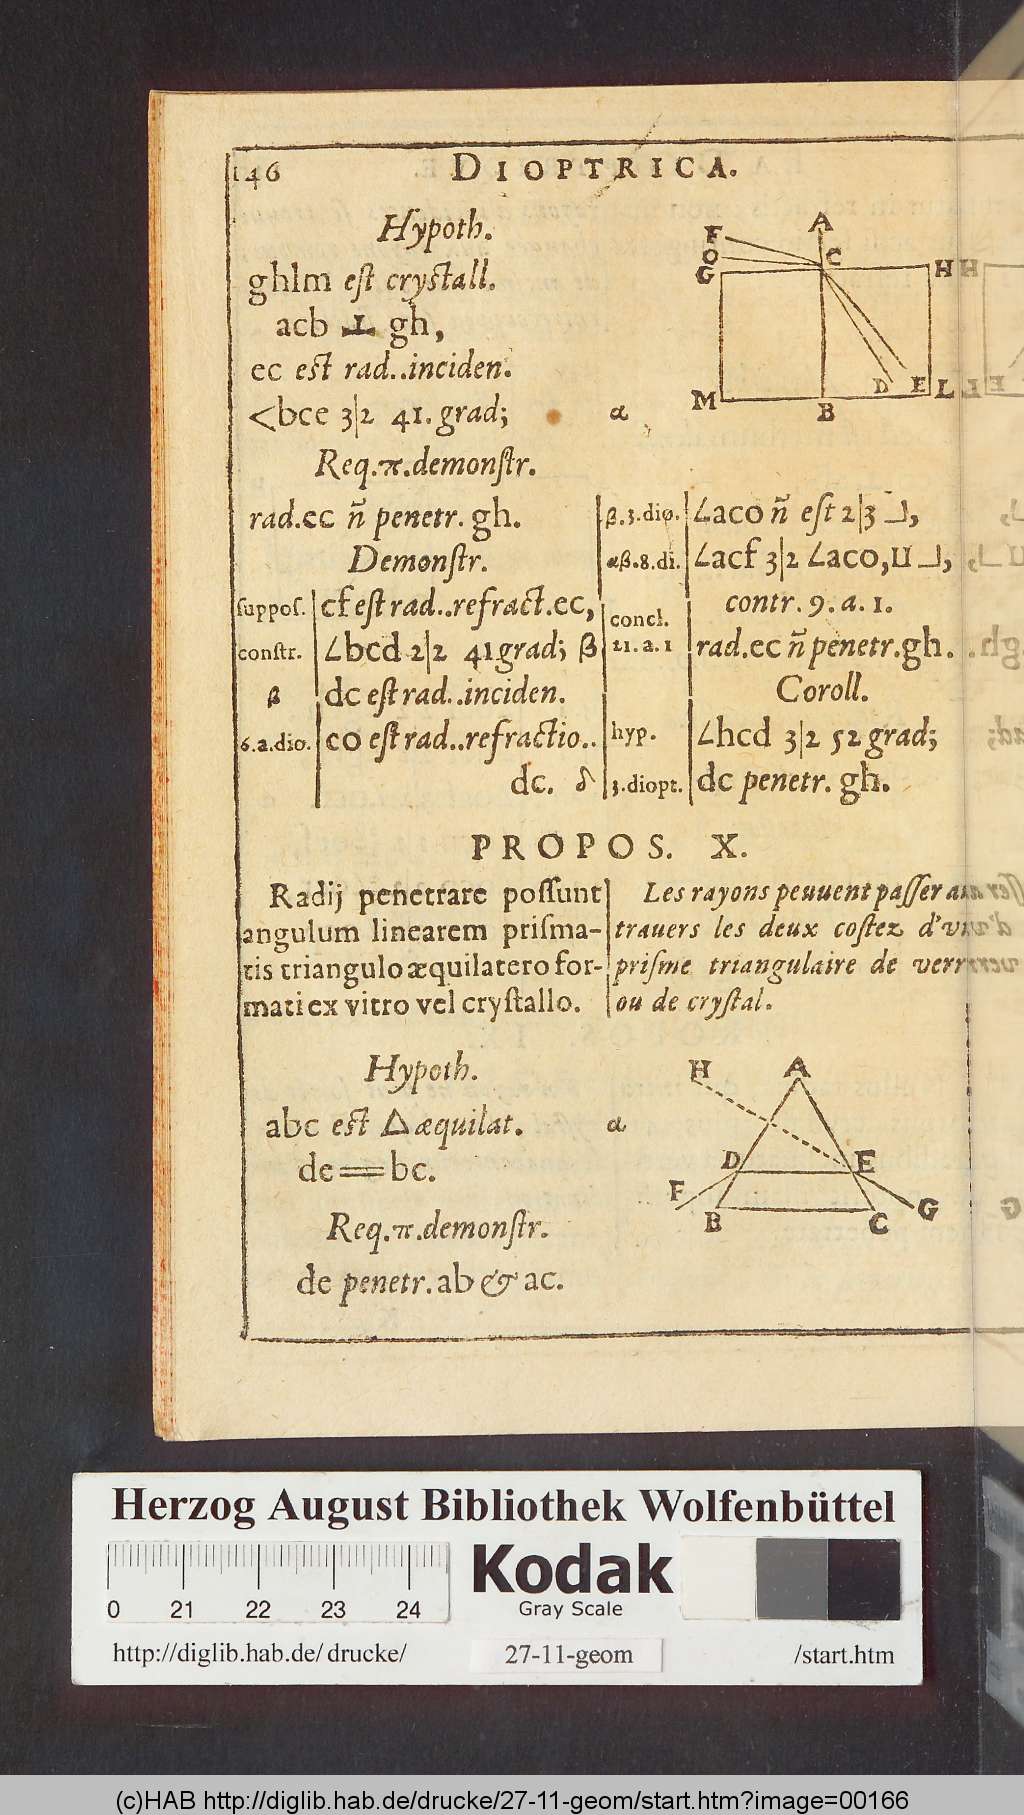 146 DIOPTRICA.
Hypoth.
ghlm est crystall.
acb ⊥ gh,
ec est rad..inciden.
<bce 3|2 41. grad; α
A
F
O
C
G
H
M
B
D
E
L
Req.π.demonstr.
rad.ec ñ penetr. gh.
Demonstr.
suppos. cf est rad..refract.ec,
constr. ∠bcd 2|2 41 grad; β
β dc est rad..inciden.
6.a.dio. co est rad..refractio..
dc. δ
β.3.dio. ∠aco ñ est 2|3 ⅃,
αβ.8.di. ∠acf 3|2 ∠aco, ⊔ ⅃,
contr. 9. a. 1.
concl.
21.a.1 rad.ec ñ penetr.gh.
Coroll.
hyp. ∠hcd 3|2 52 grad;
3.diopt. dc penetr. gh.
PROPOS. X.
Radij penetrare possunt
angulum linearem prisma-
tis triangulo æquilatero for-
mati ex vitro vel crystallo.
Les rayons peuuent passer au
trauers les deux costez d'vn
prisme triangulaire de verre
ou de crystal.
Hypoth.
abc est △ æquilat. α
de == bc.
Req.π.demonstr.
de penetr. ab & ac.
H
A
D
E
F
B
C
G
Herzog August Bibliothek Wolfenbüttel
0 21 22 23 24
Kodak
Gray Scale
http://diglib.hab.de/ drucke/ 27-11-geom /start.htm
(c)HAB http://diglib.hab.de/drucke/27-11-geom/start.htm?image=00166